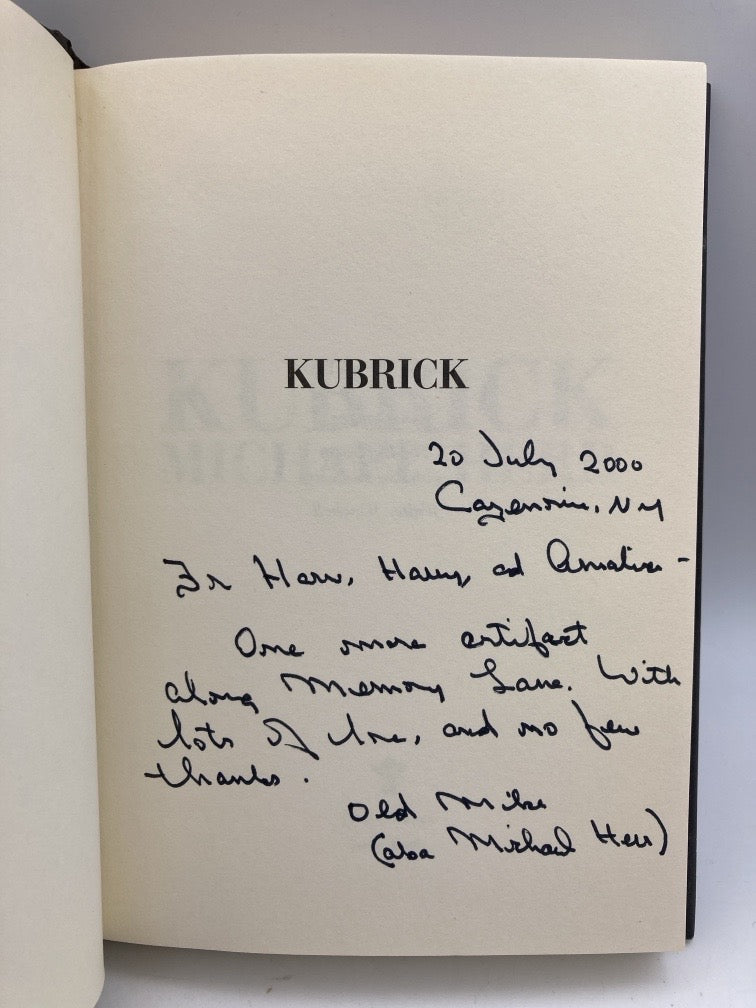 KUBRICK
20 July 2000
Cazenovia, NY
For Harry, and
One more artifact
along Memory Lane. With
lots of love, and no few
thanks.
Old Mike
(aka Michael Herr)